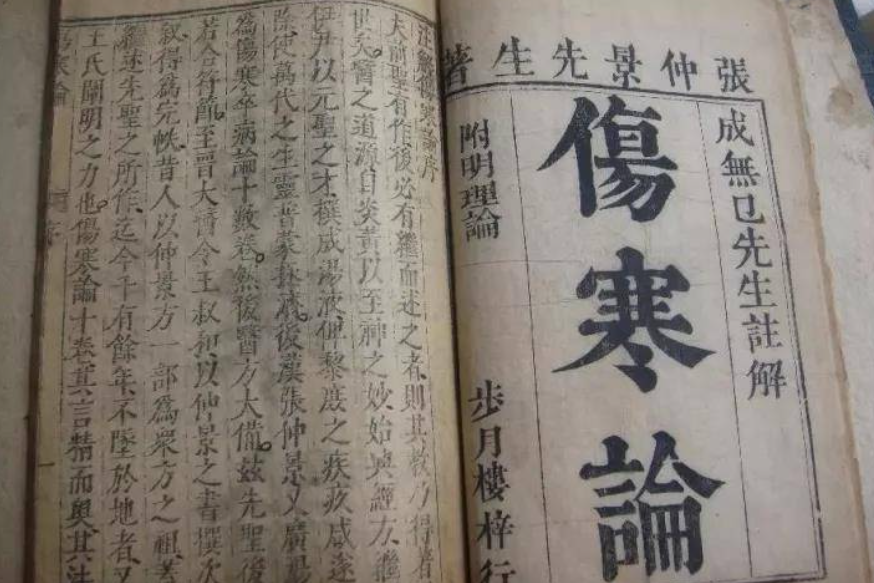 張仲景先生著
成無已先生註解
傷寒論
附明理論
步月樓梓行
註解傷寒論序
夫前聖有作後必有繼而述之者則其教乃得著
世矣醫之道源自炎黃以至神之妙始興經方繼
伊尹以元聖之才撰成湯液俾黎庶之疾疢咸遂
除使萬代之生靈普蒙拯濟後漢張仲景又廣湯
為傷寒卒病論十數卷然後醫方大備茲先聖後
若合符節至晉大醫令王叔和以仲景之書撰次
叙得為完帙昔人以仲景方一部為衆方之祖蓋
繼述先聖之所作迄今千有餘年不墜於地者又
王氏闡明之力也傷寒論十卷其言精而奧其法
傷寒論 序